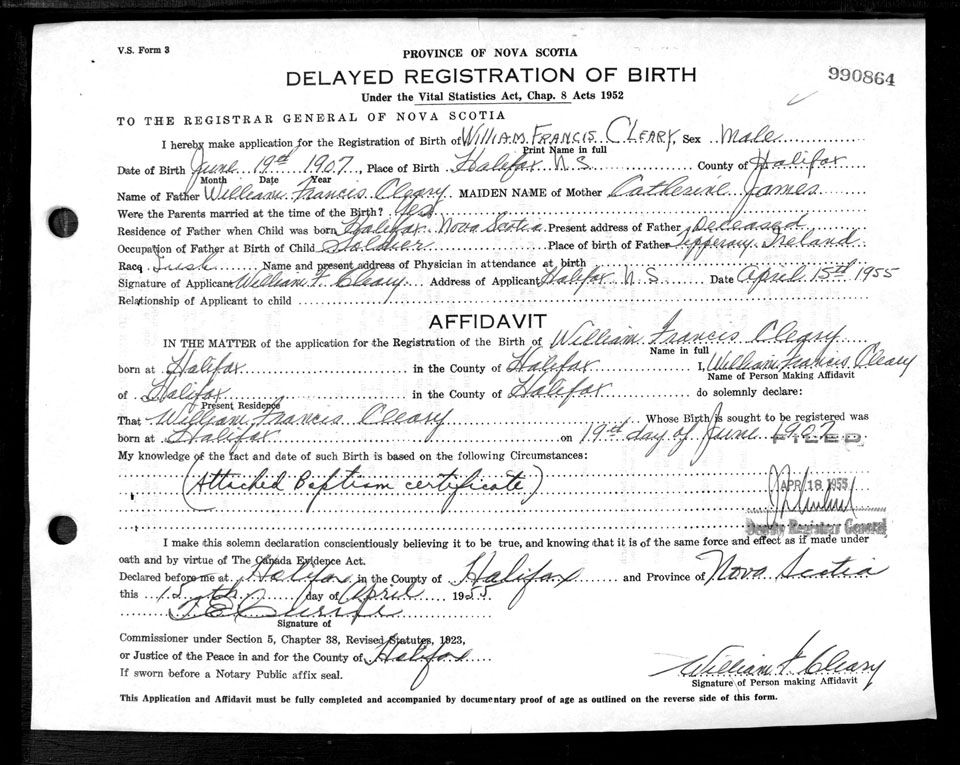 V.S. Form 3
PROVINCE OF NOVA SCOTIA
DELAYED REGISTRATION OF BIRTH
990864
Under the Vital Statistics Act, Chap. 8 Acts 1952
TO THE REGISTRAR GENERAL OF NOVA SCOTIA
I hereby make application for the Registration of Birth of WILLIAM FRANCIS CLEARY, Sex Male
Print Name in full
Date of Birth June 19th 1907, Place of Birth Halifax N.S. County of Halifax
Month Date Year
Name of Father William Francis Cleary MAIDEN NAME of Mother Catherine James
Were the Parents married at the time of the Birth? Yes
Residence of Father when Child was born Halifax Nova Scotia Present address of Father Deceased
Occupation of Father at Birth of Child Soldier Place of birth of Father Tepperary Ireland
Race Irish Name and present address of Physician in attendance at birth
Signature of Applicant William F. Cleary Address of Applicant Halifax N.S. Date April 15th 1955
Relationship of Applicant to child
AFFIDAVIT
IN THE MATTER of the application for the Registration of the Birth of William Francis Cleary
Name in full
born at Halifax in the County of Halifax I, William Francis Cleary
Name of Person Making Affidavit
of Halifax in the County of Halifax do solemnly declare:
Present Residence
That William Francis Cleary Whose Birth is sought to be registered was
born at Halifax on 19th day of June 1907
FILED
My knowledge of the fact and date of such Birth is based on the following Circumstances:
(Attached Baptism certificate)
APR 18 1955
Deputy Registrar General
I make this solemn declaration conscientiously believing it to be true, and knowing that it is of the same force and effect as if made under
oath and by virtue of The Canada Evidence Act.
Declared before me at Halifax in the County of Halifax and Province of Nova Scotia
this 15th day of April 1955
Signature of
Commissioner under Section 5, Chapter 38, Revised Statutes, 1923,
or Justice of the Peace in and for the County of Halifax
If sworn before a Notary Public affix seal.
William F. Cleary
Signature of Person making Affidavit
This Application and Affidavit must be fully completed and accompanied by documentary proof of age as outlined on the reverse side of this form.